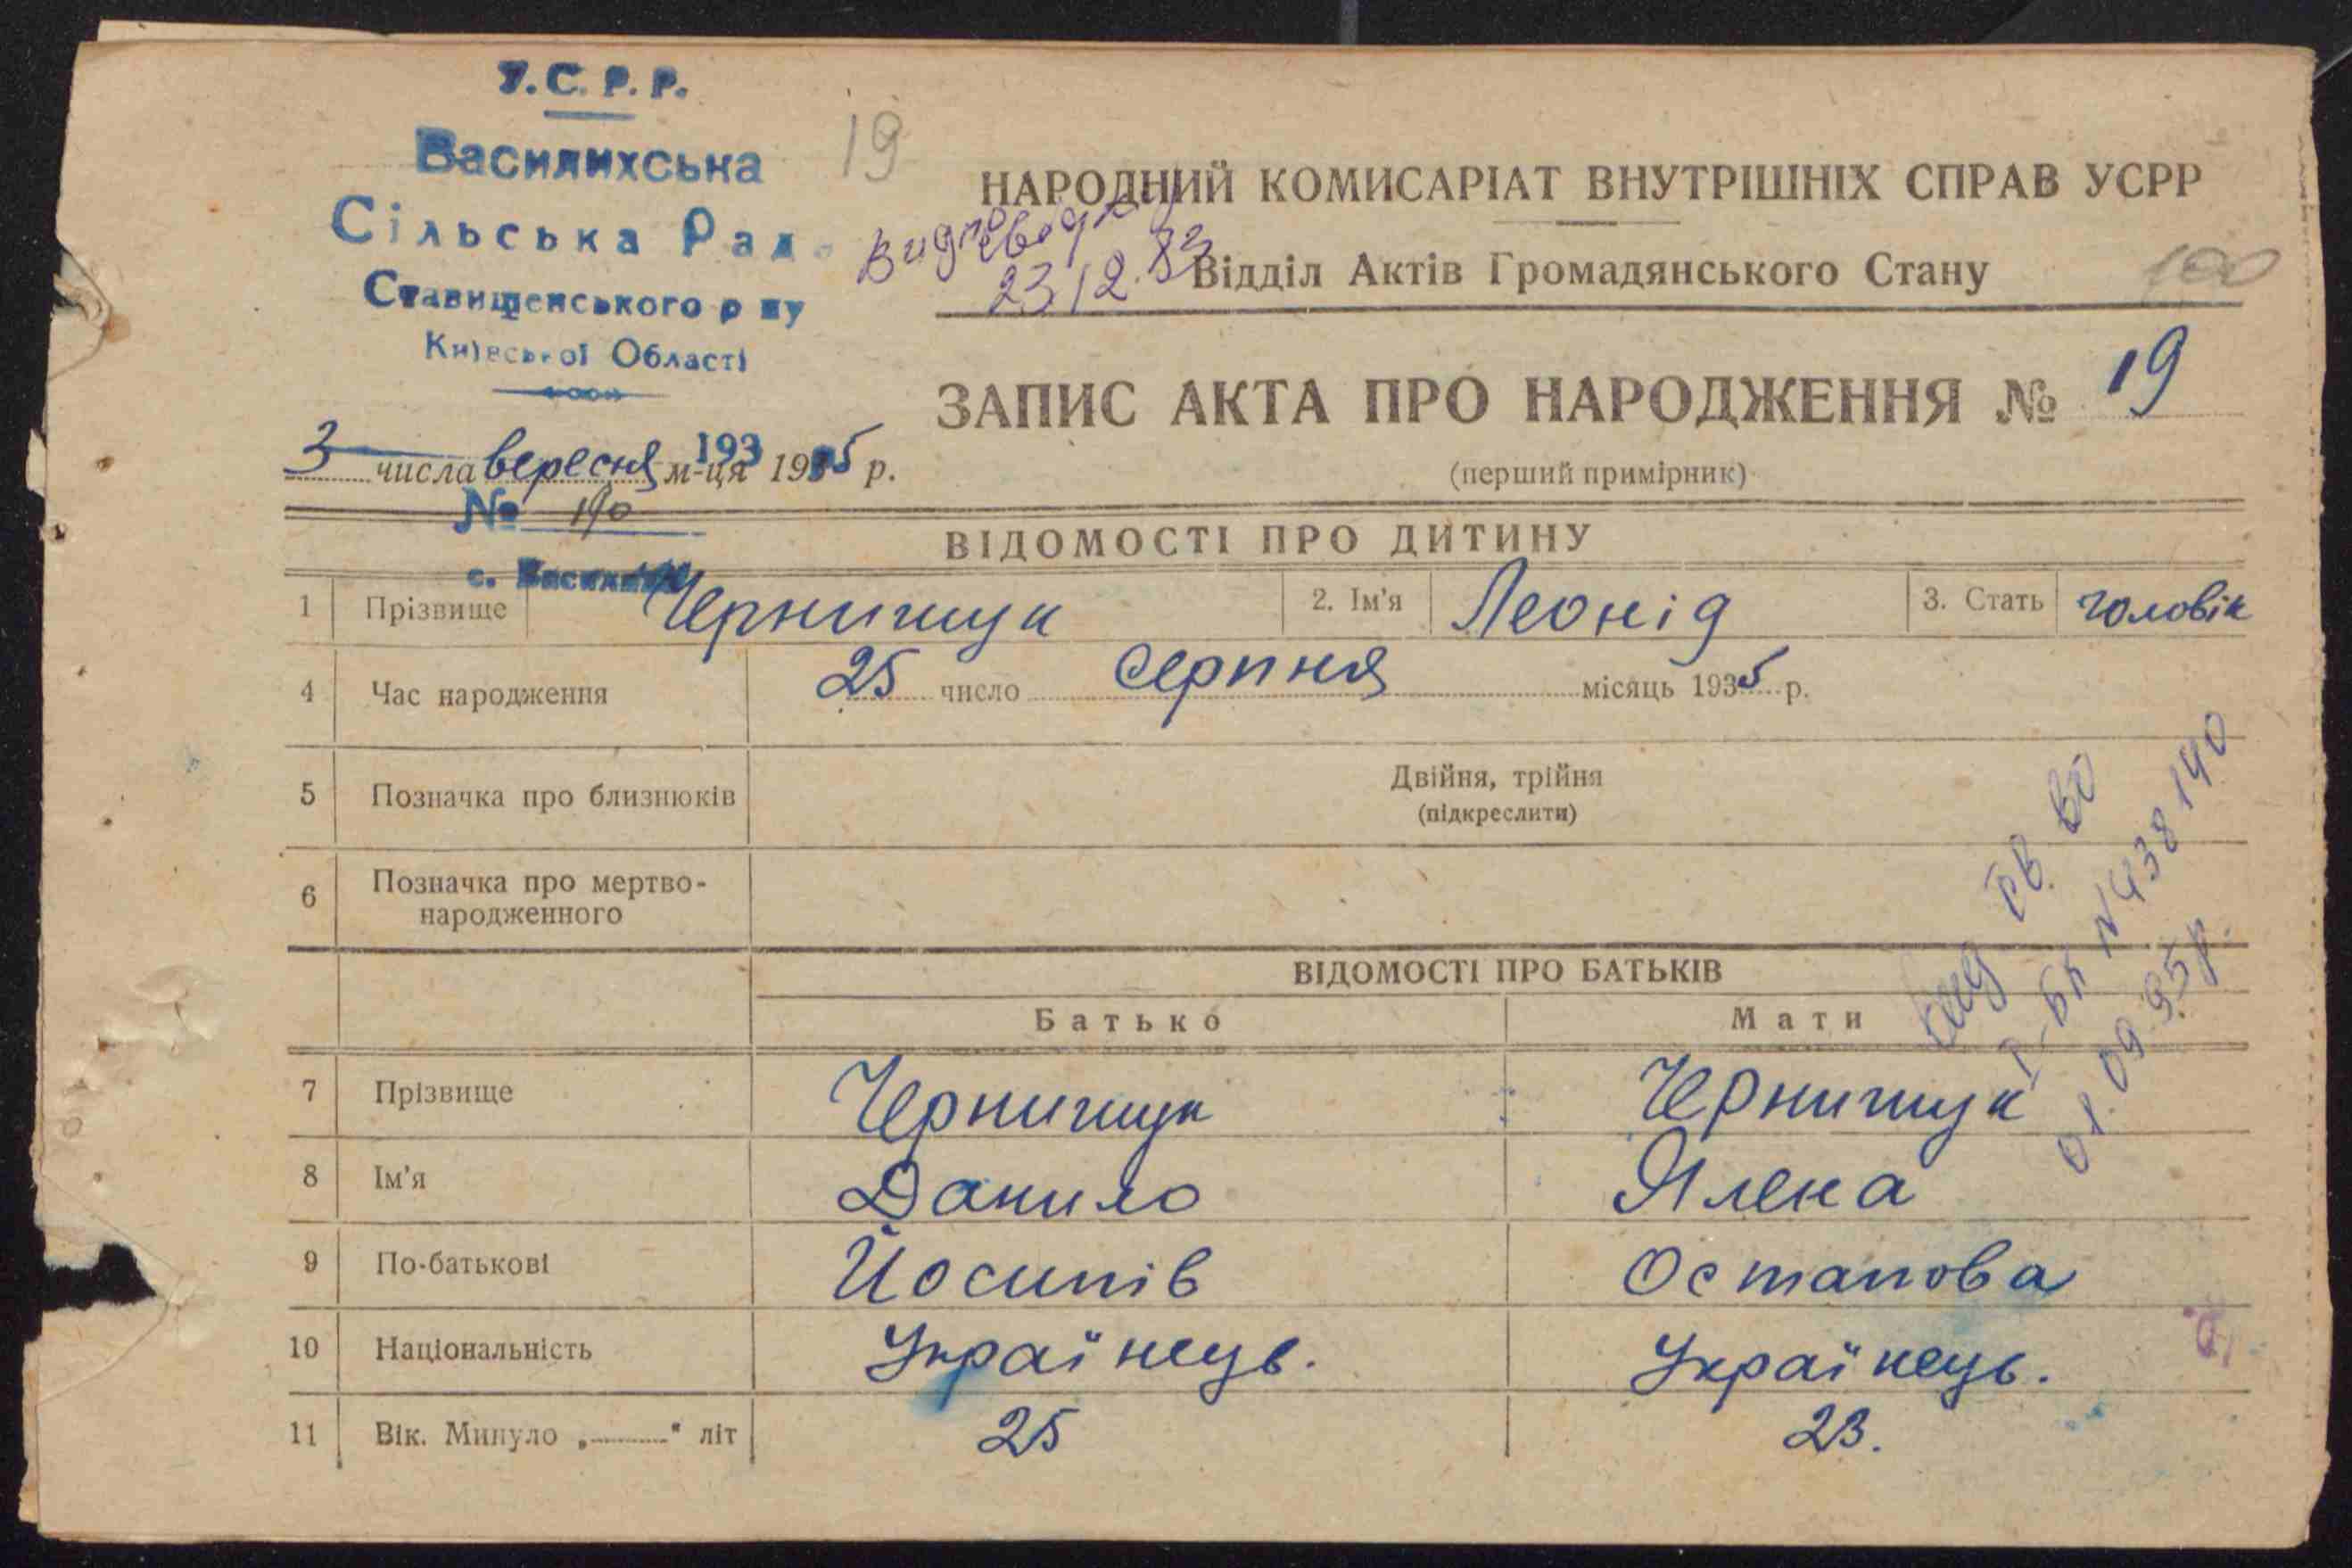 У.С.Р.Р.
Василихська
Сільська Рада
Ставищенського р ну
Київської Області
19
НАРОДНИЙ КОМИСАРІАТ ВНУТРІШНІХ СПРАВ УСРР
23/2.83
Відділ Актів Громадянського Стану
100
ЗАПИС АКТА ПРО НАРОДЖЕННЯ № 19
(перший примірник)
3 числа вересня м-ця 193 1935 р.
№ 190
с. Василиха
ВІДОМОСТІ ПРО ДИТИНУ
1 Прізвище Чернишук 2. Ім'я Леонід 3. Стать чоловік
4 Час народження 25 число серпня місяць 1935 р.
5 Позначка про близнюків Двійня, трійня
(підкреслити)
6 Позначка про мертво-
народженного
вид св. во
І-БК №438140
01.09.95р.
ВІДОМОСТІ ПРО БАТЬКІВ
Батько Мати
7 Прізвище Чернишук Чернишук
8 Ім'я Данило Ялена
9 По-батькові Йосипів Остапова
10 Національність Українець. Українець.
11 Вік. Минуло „ “ літ 25 23.